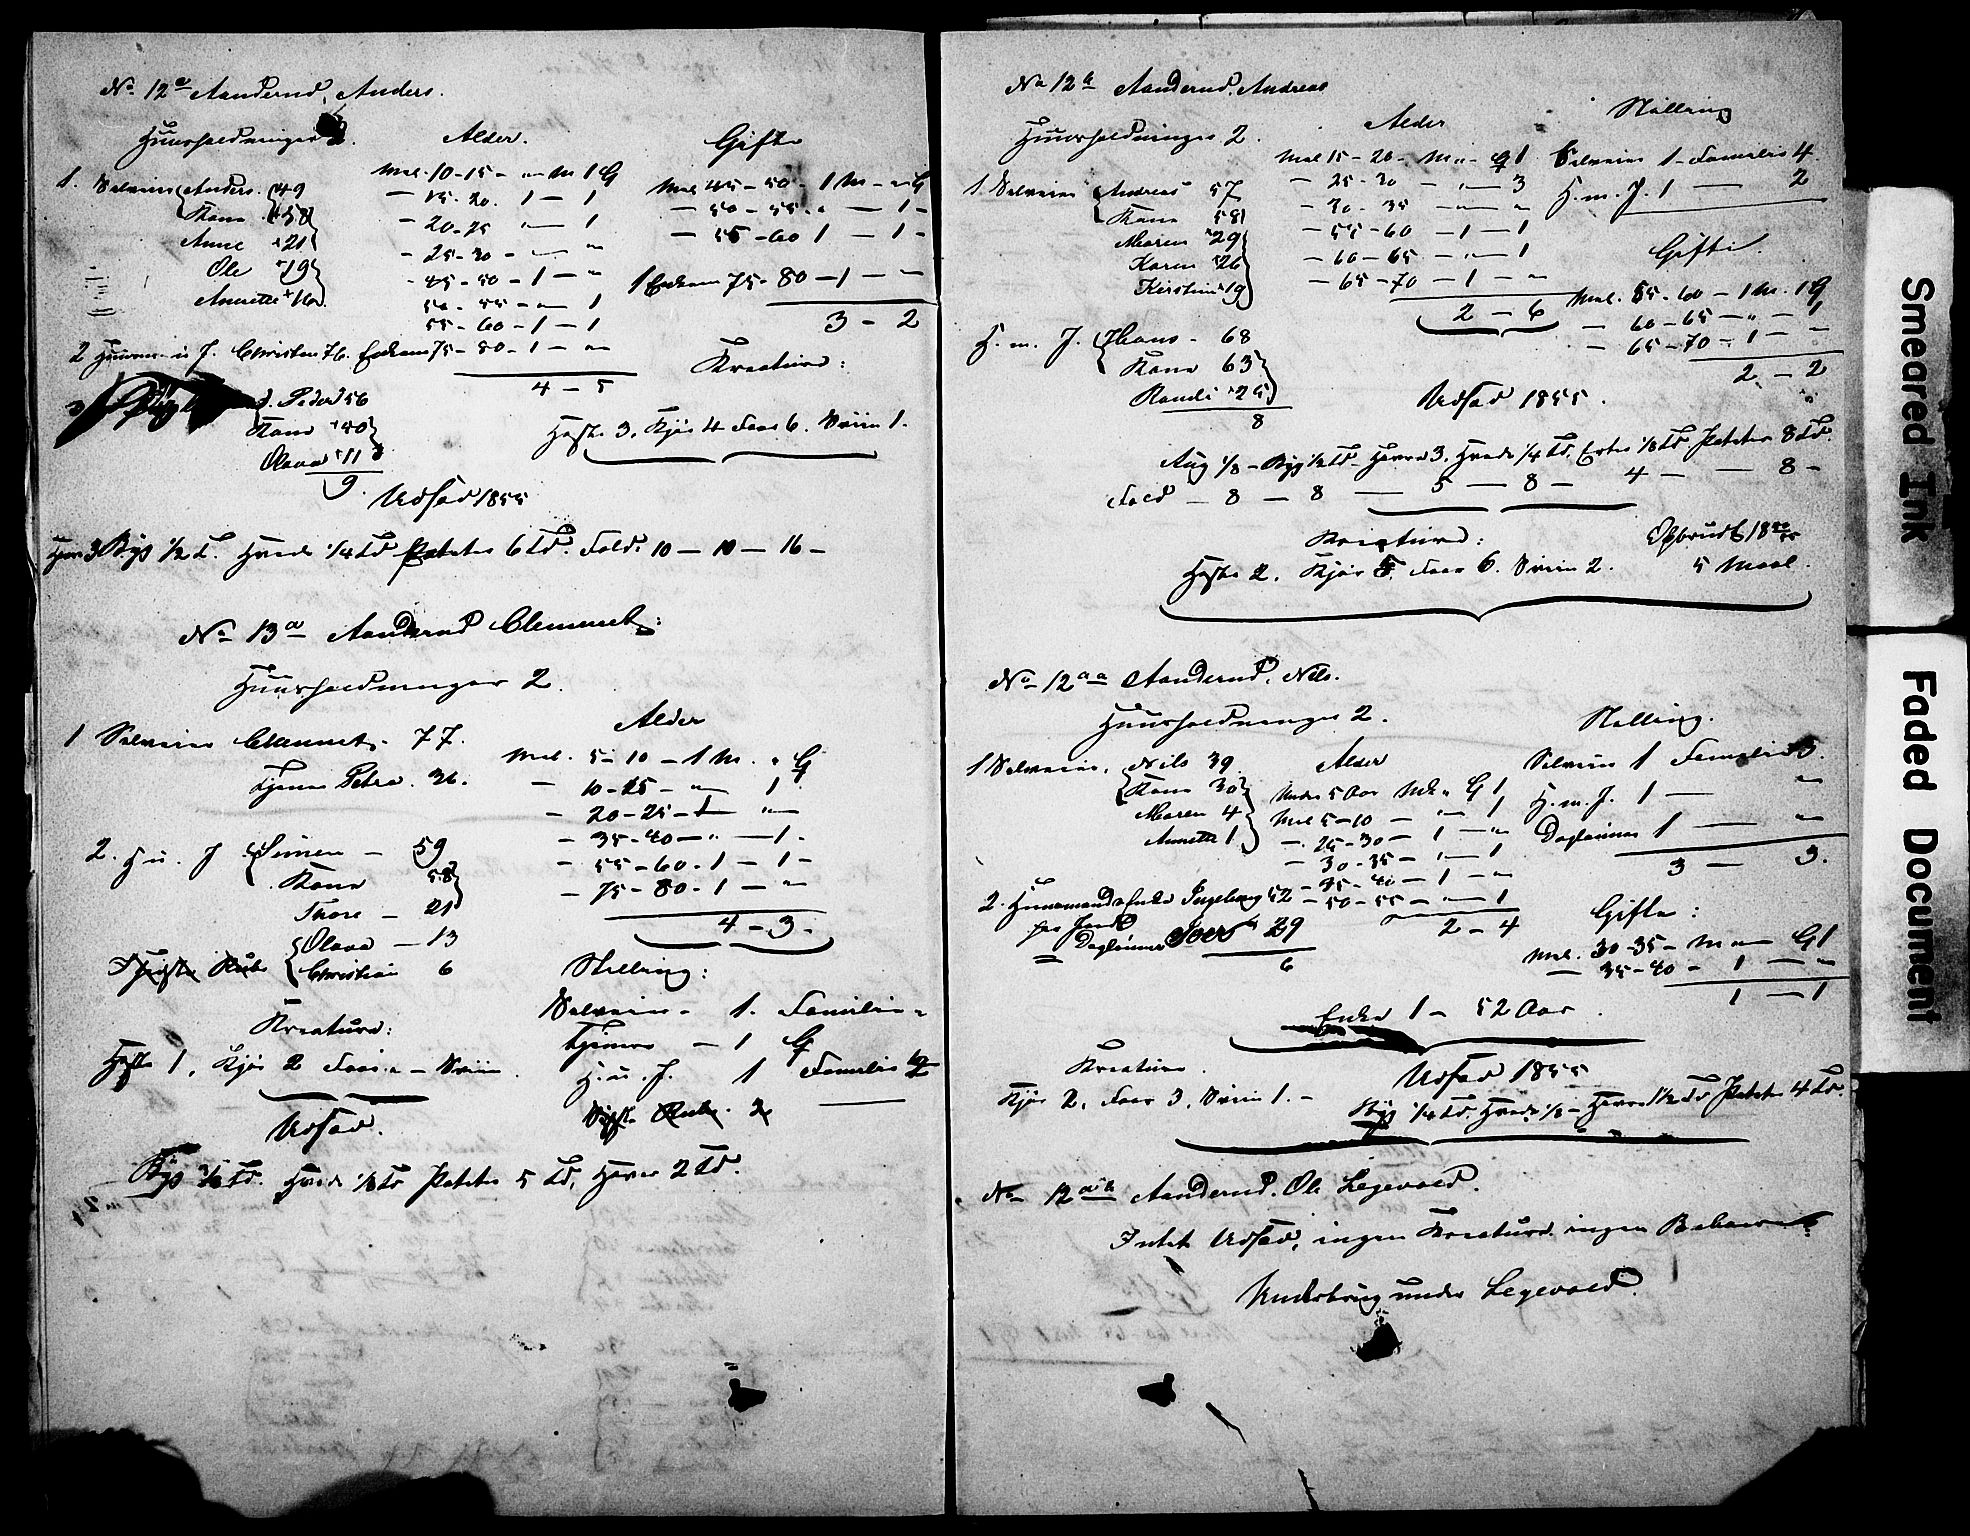 No 12a Aanderud, Anders.
Huusholdninger 2.
Alder.
Gifte
1. Selveier Anders. 49
Kone 58
Anne 21
Ole 19
Annette 16
Mel. 10-15 - " M 1 G
— 15-20. 1 — 1
— 20-25 " — 1
— 25-30 - " — "
- 45-50 - 1 — "
50-55 - " — 1
55-60 - 1 — 1
Mel. 45-50 - 1 M - " G
— 50-55 - " — 1 -
— 55-60 1 — 1 -
1 Enkem 75-80 — 1 — "
3 - 2
2 Huusm. u. J. Christen 76. Enkem 75-80 - 1 — "
4 - 5
Kreature:
Peder 56
Kone 40
Olava 11
9
Heste 3. Kjør 4 Faar 6. Sviin 1.
Udsæd 1855
Havr 3 Byg 1/2 T. Hvede 1/4 Td Poteter 6 Td. Fold. 10 — 10 — 16 —
No 13a Aanderud Clemmet:
Huusholdninger 2.
1 Selveier Clemmet. 77.
Tjener Petra. 36.
2. H. u. J. Simen — 59
Kone 58
Thore — 21
Olava — 13
Christian 6
Alder
Mel. 5-10 — 1 M. " G
— 10-15 - " 1
— 20-25 - 1 "
— 35-40 — " — 1 -
— 55-60 - 1 — 1 -
— 75-80 - 1 — "
4 - 3 -
Kreature:
Heste 1, Kjør 2 Faar " — Sviin
Stilling:
Selveier - 1. Familie "
Tjener — 1 G
H. u. J. 1 Familie
Udsæd.
Byg 3/8 Td. Hvede 1/8 Td Poteter 5 Td, Havre 2 Td.
No 12b Aanderud, Andreas
Huusholdninger 2.
Alder
Stilling
1 Selveier Andreas 57
Kone 58
Maren 29
Karen 26
Kirstine 19
Mel 15-20 - M " - G 1
— 25-30 — " — 3
— 30-35 — " "
— 55-60 — 1 — 1
— 60-65 — " — 1
— 65-70 — 1 — "
2 - 6
Selveier 1 - Familie 4.
H. m. J. 1 — 2
Gifte.
Mel. 55-60 — 1 M. 1 G
— 60-65 — " — 1
— 65-70 - 1 — "
2 - 2
H. m. J. Hans - 68
Kone 63
Randi 25
8
Udsæd 1855.
Rug 1/8 - Byg 1/2 Td - Havre 3. Hvede 1/4 Td, Erter 1/8 Td Poteter 8 Td.
Fold — 8 — 8 — 5 — 8 — 4 — — 8 —
Kreature:
Heste 2. Kjør 5. Faar 6. Sviin 2.
5 Maal.
No 12aa Aanderud, Nils.
Huusholdninger 2.
Stilling.
1 Selveier, Nils 39
Kone 30
Maren 4
Annette 1
Alder
Under 5 Aar Mk " G 1
Mel 5-10 — " — 1
— 25-30 — 1 — "
— 30-35 — " — 1
— 35-40 — 1 — "
— 50-55 — " — 1
2 - 4
Selveier 1 Familie 3.
H. m. J. 1 — "
Dagleiner 1 — "
3 — 3.
2. Huusmandsenke Ingeborg 52
Dagleiner 29
6
Gifte:
Mel. 30-35 - M " — G 1
— 35-40 - 1 — "
1 — 1
Enke 1 — 52 Aar
Kreature.
Kjør 2, Faar 3, Sviin 1. -
Udsæd 1855
Byg 1/4 Td. Hvede 1/8 - Havre 1 1/2 Td Poteter 4 Td.
No 12ab Aanderud. Ole Legevold.
Intet Udsæd, ingen Kreature ingen Beboere
Underbrug under Legevold.
Smeared Ink
Faded Document